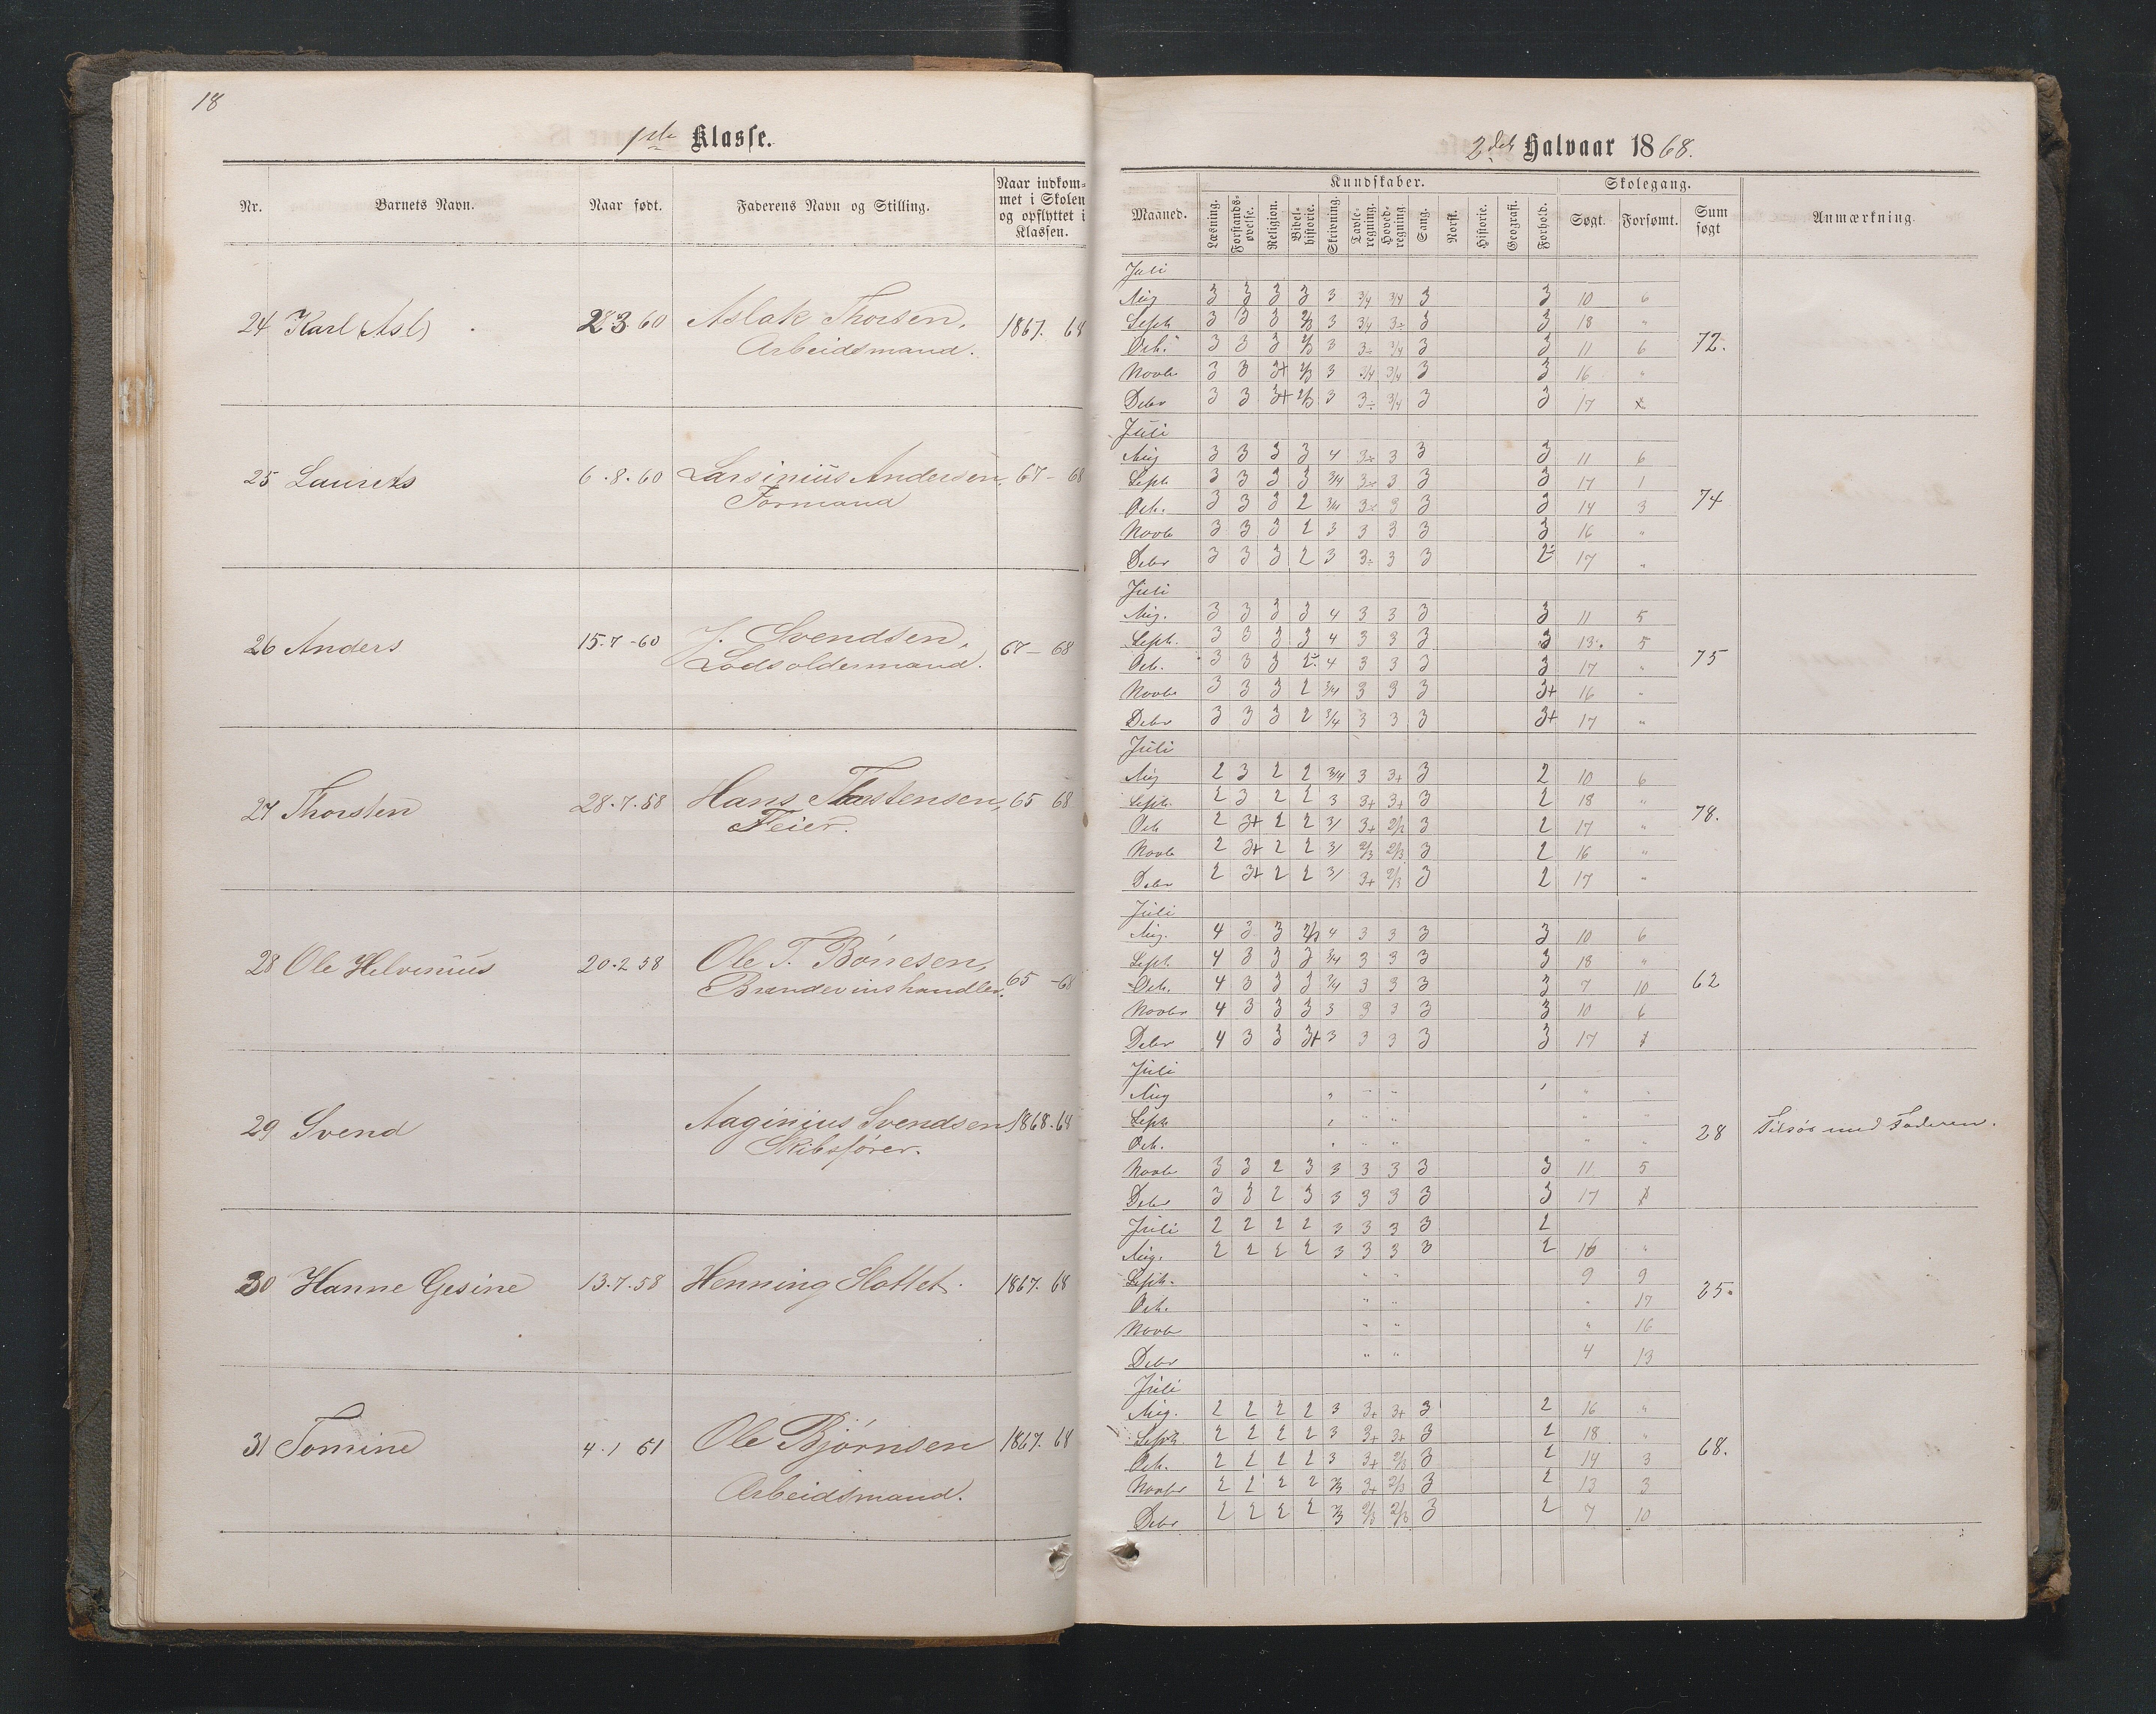 18
1ste Klasse.
Nr. Barnets Navn. Naar født. Faderens Navn og Stilling. Naar indkom-
met i Skolen
og opflyttet i
Klassen.
24 Karl (Asl) 283.60 Aslak Thorsen, 1867. 68
Arbeidsmand.
25 Laurets 6.8.60 Larsinius Andersen, 67- 68
Formand
26 Anders 15.7-60 J. Svendsen, 67- 68
Lodsoldermand.
27 Thorsten 28.7.58 Hans Thostensen, 65 68
Feier.
28 Ole Helvinius 20.2 58 Ole T. Bønesen, 65 -68
Brændevinshandler.
29 Svend Aaginius Svendsen 1868.64
Skibsfører.
30 Hanne Gesine 13.7.58 Henning Slottet. 1867. 68
31 Tomine 4.1 61 Ole Bjørnsen 1867. 68
Arbeidsmand.
2det Halvaar 1868.
Maaned. Kundskaber. Skolegang. Anmærkning.
Læsning. Forstands-
øvelse. Religion. Bibel-
historie. Skrivning. Tavle-
regning. Hoved-
regning. Sang. Norsk. Historie. Geografi. Forhold. Søgt. Forsømt. Sum
søgt
Juli
Aug 3 3 3 3 3 3/4 3/4 3 3 10 6
Septr 3 3 3 2/3 3 3/4 3÷ 3 3 18 "
Octr. 3 3 3 2/3 3 3÷ 3/4 3 3 11 6 72.
Novbr 3 3 3+ 2/3 3 3/4 3/4 3 3 16 "
Debr 3 3 3+ 2/3 3 3÷ 3/4 3 3 17
Juli
Aug 3 3 3 3 4 3÷ 3 3 3 11 6
Septr 3 3 3 3 3/4 3÷ 3 3 3 17 1
Oct. 3 3 3 2 3/4 3÷ 3 3 3 14 3 74
Novbr 3 3 3 2 3 3 3 3 3 16 "
Debr 3 3 3 2 3 3÷ 3 3 2÷ 17 "
Juli
Aug. 3 3 3 3 4 3 3 3 3 11 5
Septr. 3 3 3 3 4 3 3 3 3 13 5
Oct. 3 3 3 2÷ 4 3 3 3 3 17 " 75
Novbr 3 3 3 2 3/4 3 3 3 3+ 16 "
Debr 3 3 3 2 3/4 3 3 3 3+ 17 "
Juli
Aug 2 3 2 2 3/4 3 3+ 3 2 10 6
Septr. 2 3 2 2 3 3+ 3+ 3 2 18 "
Oct 2 3+ 2 2 3/ 3+ 2/2 3 2 17 " 78.
Novbr 2 3+ 2 2 3/ 2/3 2/3 3 2 16 "
Debr 2 3+ 2 2 3/ 3+ 2/3 3 2 17 "
Juli
Aug. 4 3 3 2/3 4 3 3 3 3 10 6
Septr. 4 3 3 3 3/4 3 3 3 3 18 "
Oct. 4 3 3 3 3/4 3 3 3 3 7 10 62
Novbr 4 3 3 3 3 3 3 3 3 10 6
Debr 4 3 3 3+ 3 3 3 3 3 17
Juli
Aug " " " "
Septr " " "
Oct. " " " " " 28 Tilsøs med Faderen.
Novbr 3 3 2 3 3 3 3 3 3 11 5
Debr 3 3 2 3 3 3 3 3 3 17
Juli 2 2 2 2 3 3 3 3 2
Aug. 2 2 2 2 3 3 3 3 2 16 "
Septr. " " 9 9
Oct. " " " 17 25.
Novbr " " " 16
Debr " " 4 13
Juli
Aug. 2 2 2 2 3 3+ 3+ 3 2 16 "
Septr. 2 2 2 2 3 3+ 3+ 3 2 18 "
Oct. 2 2 2 2 3 3+ 2/3 3 2 14 3 68.
Novbr 2 2 2 2 2/3 3+ 2/3 3 2 13 3
Debr 2 2 2 2 2/3 2/3 2/3 3 2 7 10